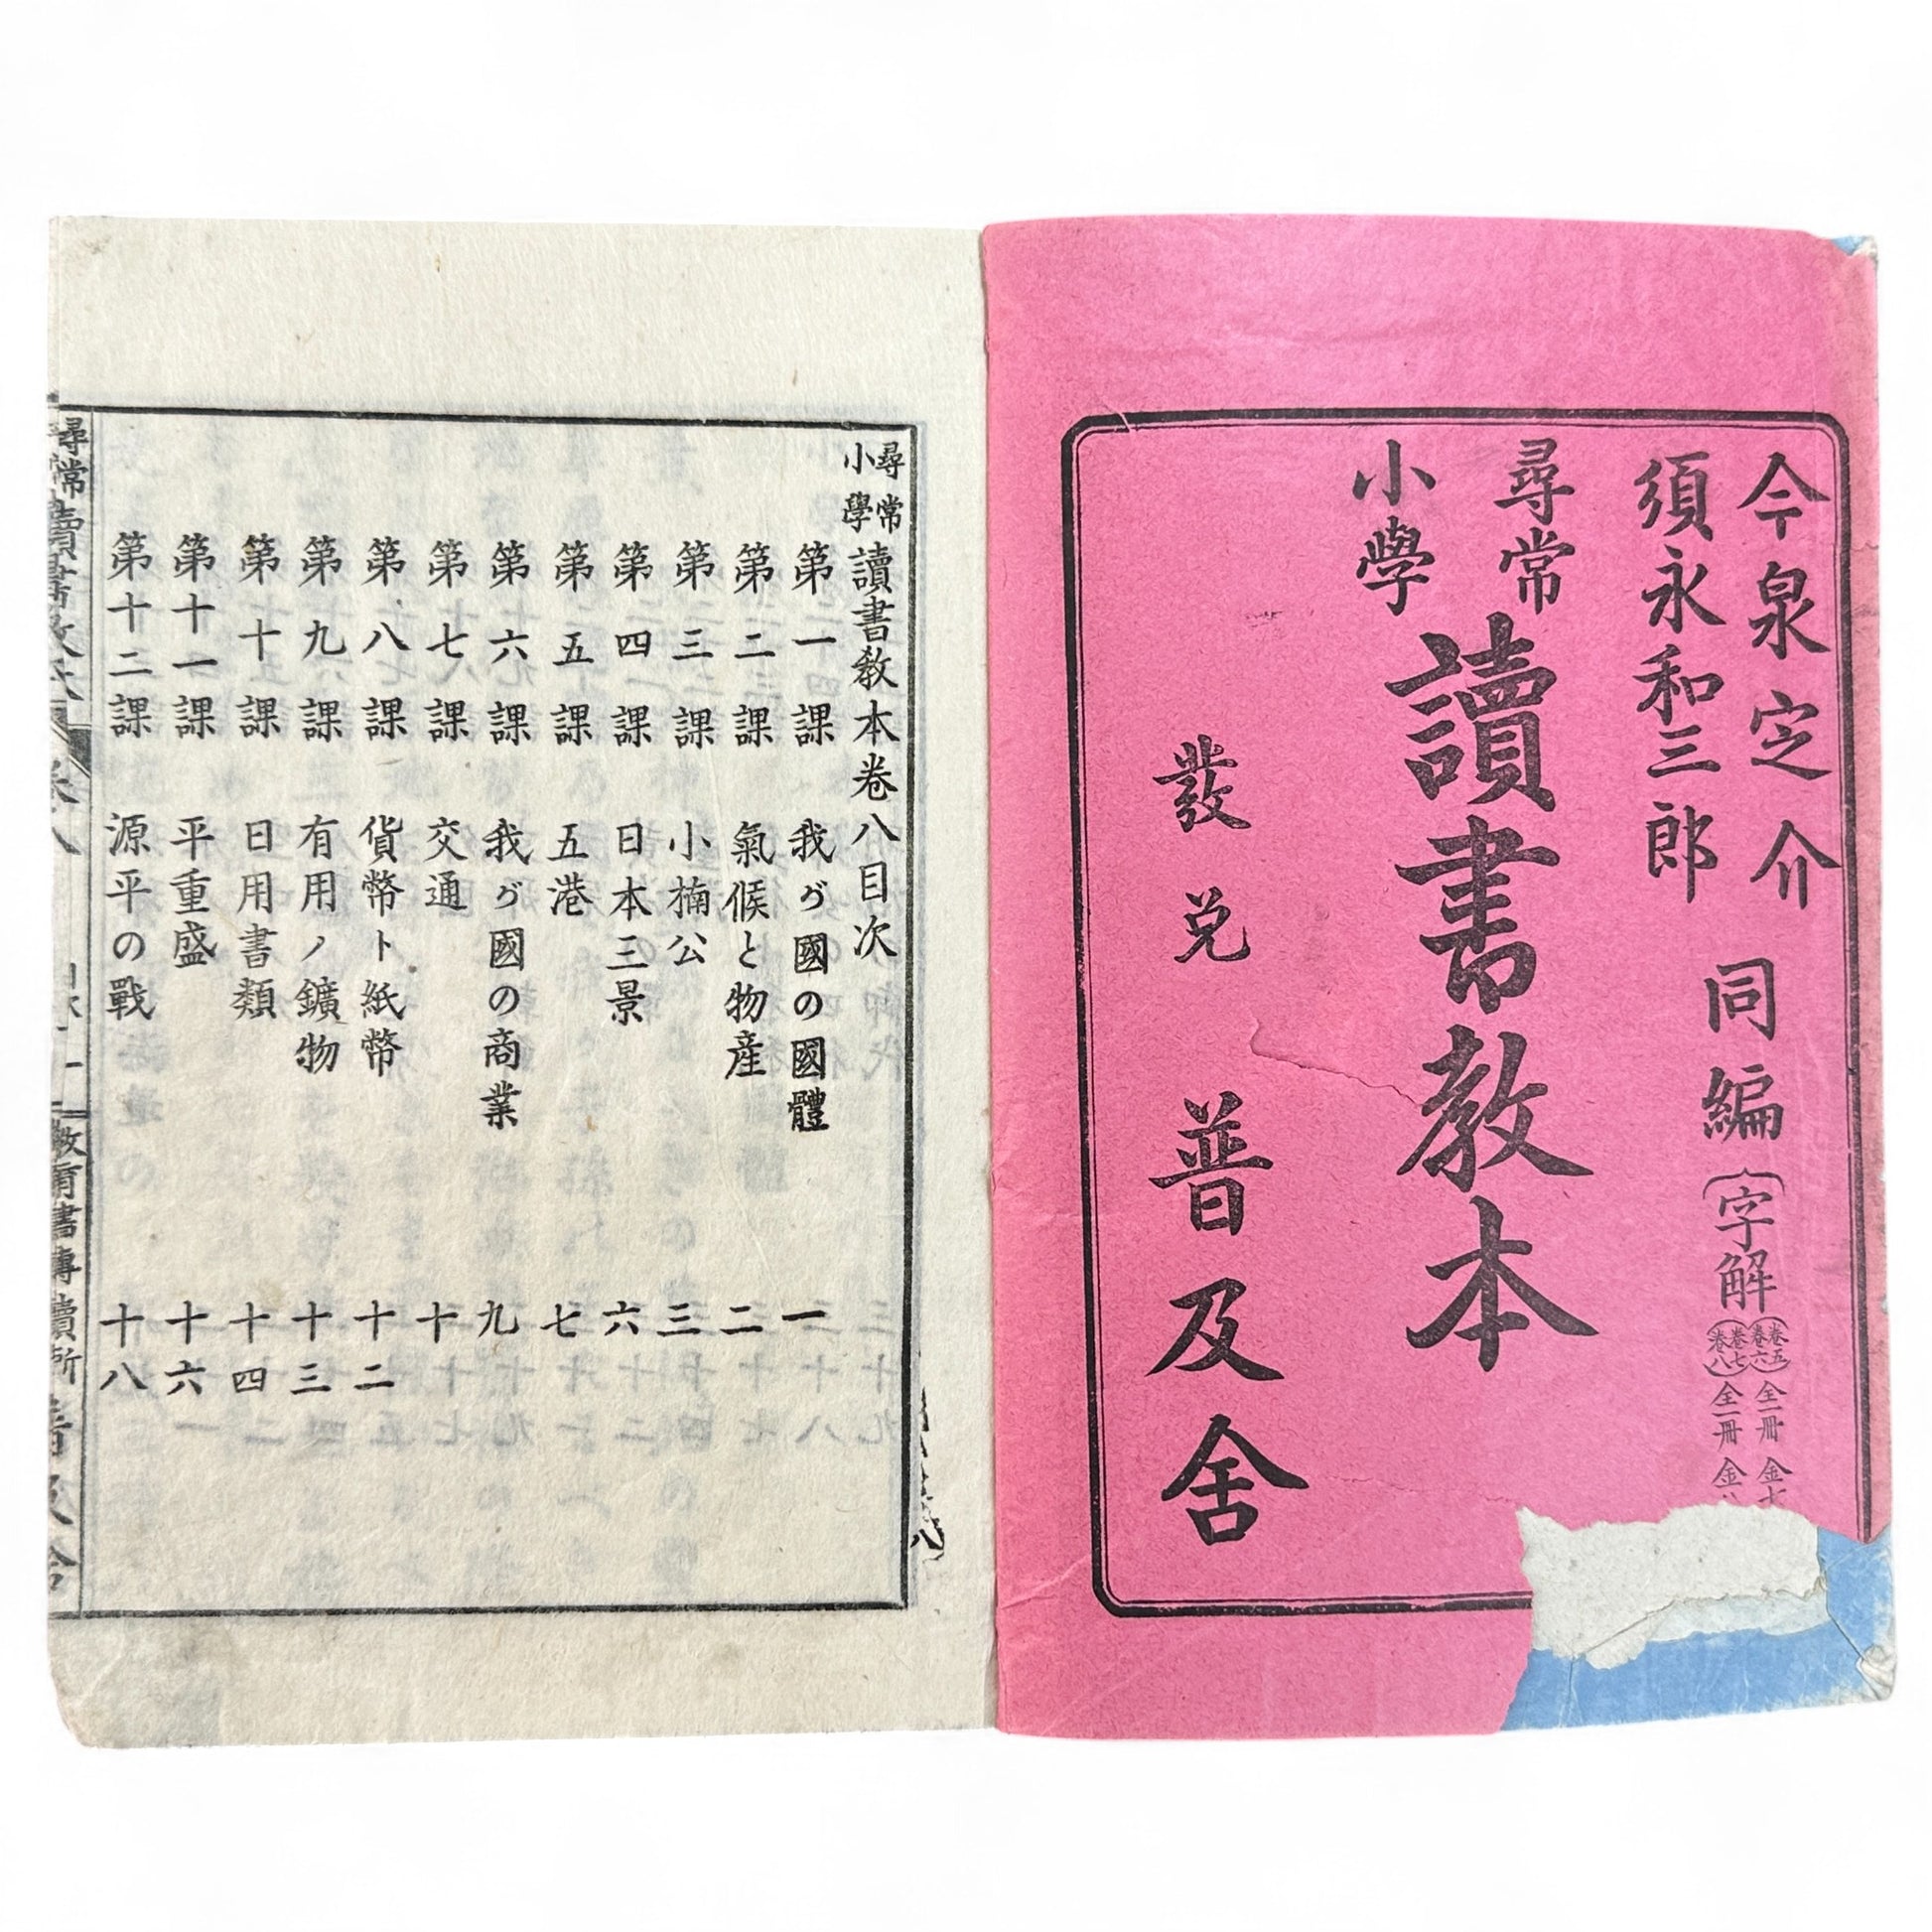 今泉定介
須永和三郎
同編
字解
卷五
卷六
全一冊
卷七
卷八
全一冊
尋常
小學
讀書教本
發兌 普及舍
尋常
小學
讀書教本卷八目次
第一課 我ガ國の國體 一
第二課 氣候と物產 二
第三課 小楠公 三
第四課 日本三景 六
第五課 五港 七
第六課 我ガ國の商業 九
第七課 交通 十
第八課 貨幣ト紙幣 十二
第九課 有用ノ鑛物 十三
第十課 日用書類 十四
第十一課 平重盛 十六
第十二課 源平の戰 十八